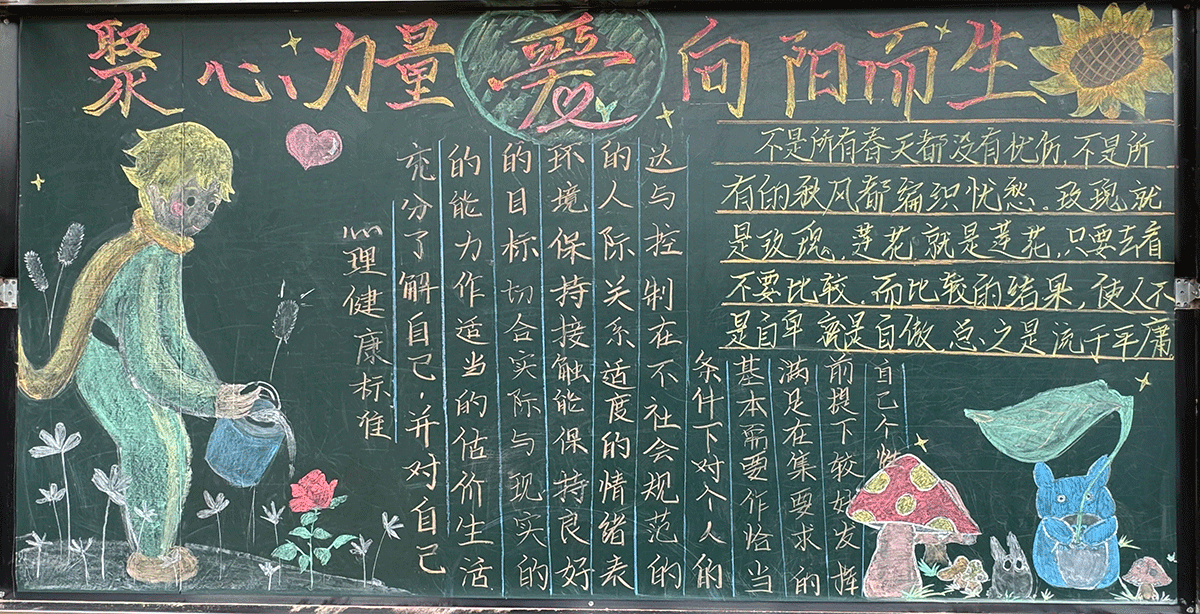 聚心力量 爱 向阳而生
不是所有春天都没有忧伤,不是所
有的秋风都编织忧愁。玫瑰就
是玫瑰,莲花就是莲花,只要去看
不要比较,而比较的结果,使人不
是自卑就是自傲,总之是流于平庸
心理健康标准
充分了解自己,并对自己
的能力作适当的估价生活
的目标切合实际与现实的
环境保持接触能保持良好
的人际关系适度的情绪表
达与控制在不社会规范的
条件下对个人的
基本需要作恰当
满足在集要求的
前提下较好发挥
自己个性